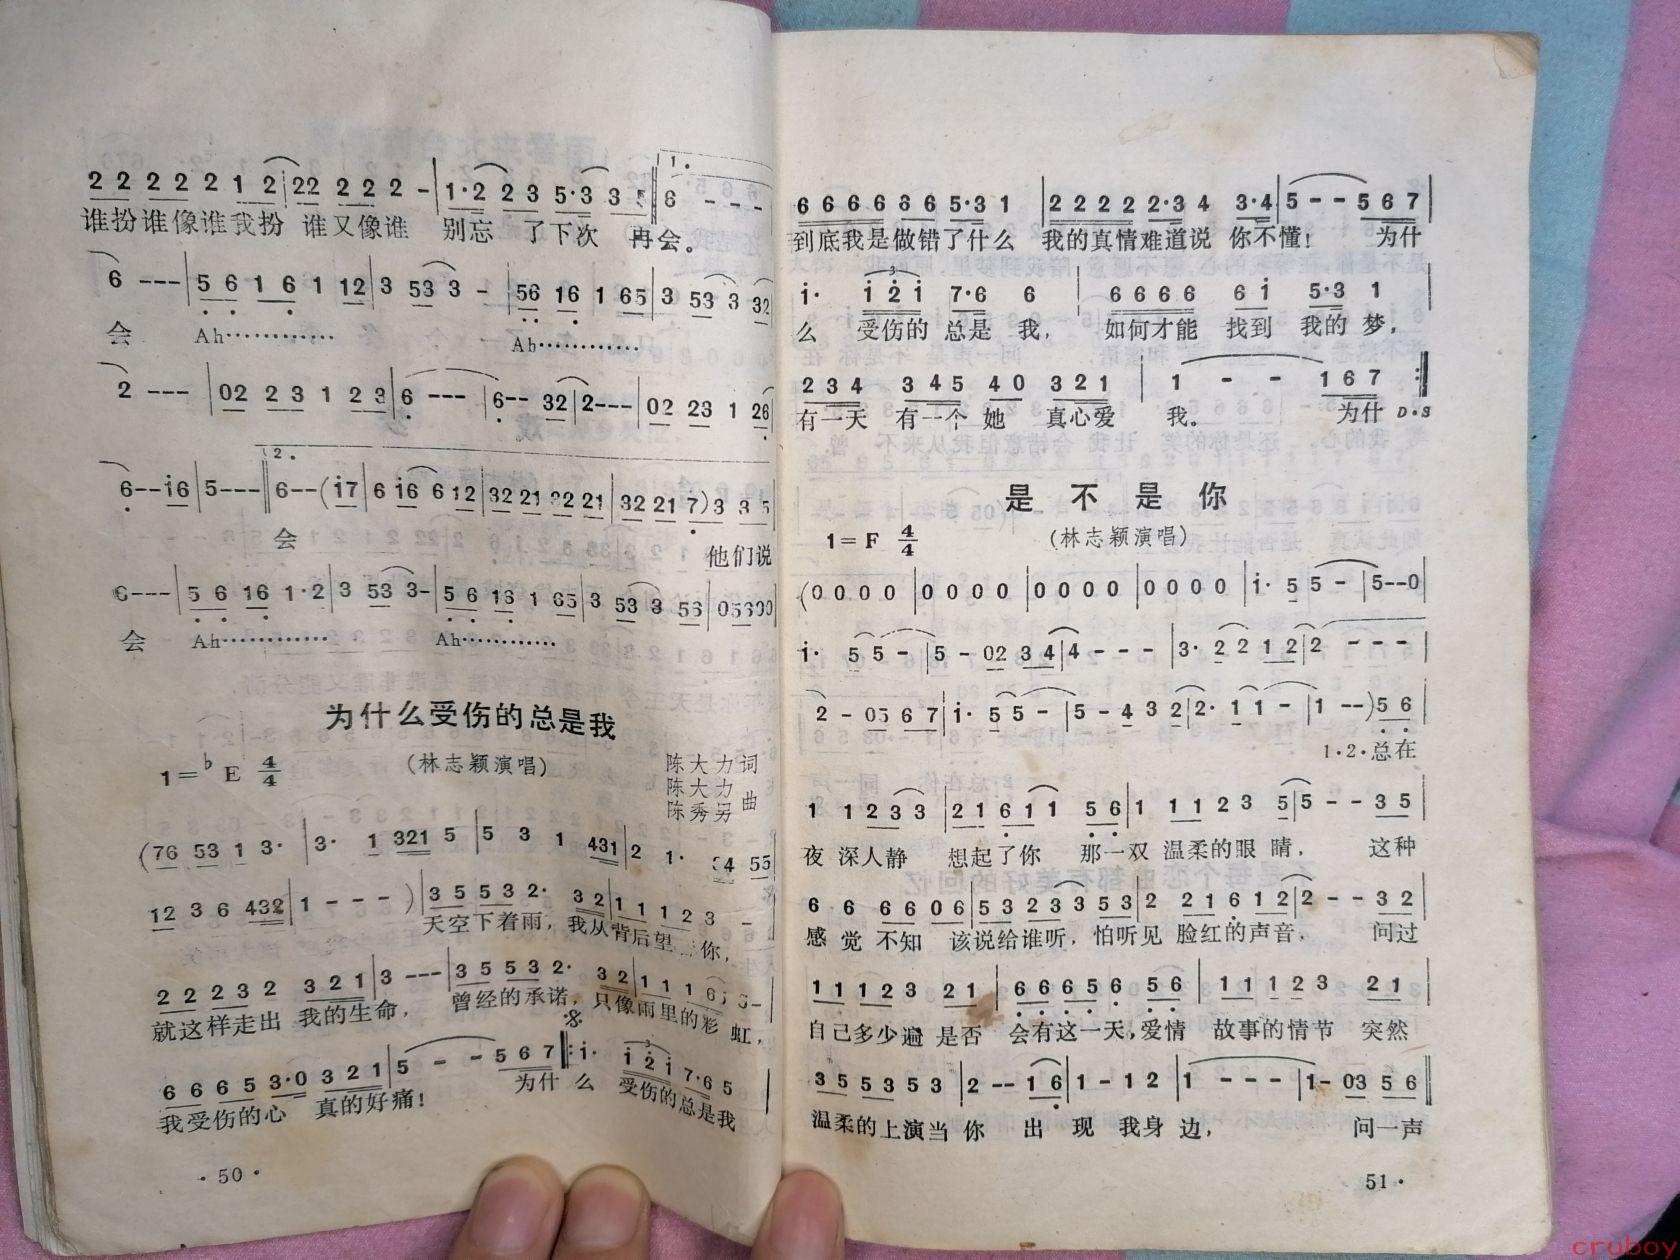 1.
2 2 2 2 2 1 2 22 2 2 2 - | 1·2 2 3 5·3 3 5 ‖ 6 - - -
谁扮谁像谁我扮 谁又像谁 别忘 了下次 再会。
6 --- | 5 6 1 6 1 12 | 3 53 3 - | 56 16 1 65 | 3 53 3 32
会 Ah………… Ah…………
2 --- | 02 2 3 1 2 3 | 6 --- | 6-- 32 | 2--- | 02 23 1 26
2.
6--i6 | 5--- ‖ 6--(i7 | 6 i6 6 12 | 32 21 22 21 | 32 21 7) 3 3 5
会 他们说
6--- | 5 6 16 1·2 | 3 53 3- | 5 6 16 1 65 | 3 53 3 56 | 05600
会 Ah………… Ah…………
为什么受伤的总是我
1=♭E 4/4 (林志颖演唱) 陈大力词
陈大力
陈秀男 曲
(76 53 1 3· | 3· 1 321 5 | 5 3 1 431 | 2 1· 34 55
12 3 6 432 | 1 - - - ) | 3 5 5 3 2· 3 2 | 1 1 1 2 3 -
天空下着雨，我从背后望 你，
2 2 2 3 2 3 2 1 | 3 --- | 3 5 5 3 2· 3 2 | 1 1 1 6 -
就这样走出 我的生命， 曾经的承诺，只像雨里的彩 虹，
6 6 6 5 3·0 3 2 1 | 5 - - 5 6 7 ‖: i· i 2 i 7·6 5
我受伤的心 真的好痛！ 为什 么 受伤的总是我
·50·
6 6 6 6 6 6 5·3 1 | 2 2 2 2 2·3 4 3·4 | 5 - - 5 6 7 |
到底我是做错了什么 我的真情难道说 你不懂！ 为什
i· i 2 i 7·6 6 | 6 6 6 6 6 i 5·3 1 |
么 受伤的 总是 我， 如何才能 找到 我的 梦，
2 3 4 3 4 5 4 0 3 2 1 | 1 - - 1 6 7 :‖
有一天 有一个 她 真心爱 我。 为什 D·S
是 不 是 你
1=F 4/4 (林志颖演唱)
(0 0 0 0 | 0 0 0 0 | 0 0 0 0 | 0 0 0 0 | i· 5 5 - | 5--0
i· 5 5 - | 5 - 02 3 4 | 4 - - - | 3· 2 2 1 2 | 2 - - - |
2 - 05 6 7 | i· 5 5 - | 5 - 4 3 2 | 2· 1 1 - | 1 --) 5 6 |
1·2·总在
1 1 2 3 3 | 2 1 6 1 1 5 6 | 1 1 1 2 3 5 | 5 - - 3 5 |
夜 深人静 想起了你 那一双 温柔的眼 睛， 这种
6 6 6 6 0 6 | 5 3 2 3 3 5 3 | 2 2 1 6 1 2 | 2 - - 3 2 |
感 觉 不知 该说给谁听，怕听见 脸红的声音， 问过
1 1 1 2 3 2 1 | 6 6 6 5 6 5 6 | 1 1 1 2 3 2 1 |
自己多少遍 是否 会有这一天，爱情 故事的情节 突然
3 5 5 3 5 3 | 2 -- 1 6 | 1 - 1 2 | 1 --- | 1- 03 5 6 ‖
温柔的上演当 你 出 现 我身 边， 问一声
51·
cruboy